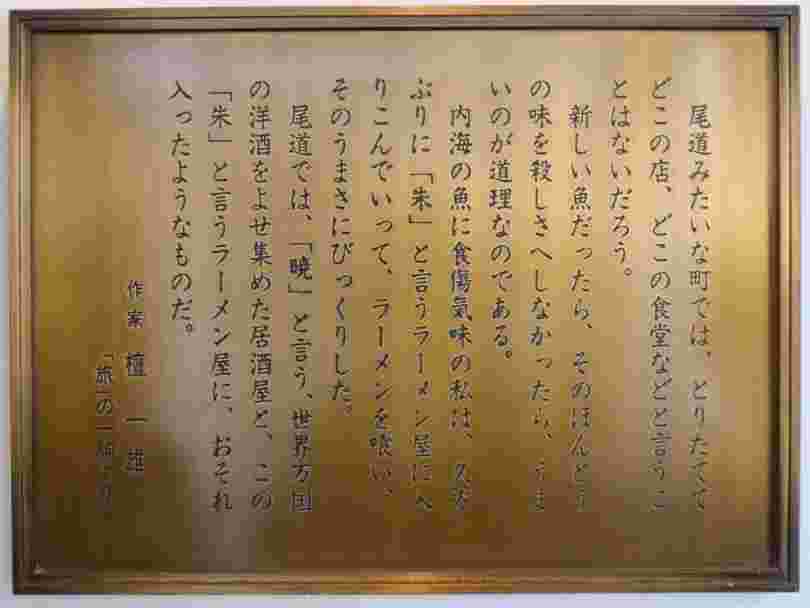 尾道みたいな町では、とりたてて
どこの店、どこの食堂などと言うこ
とはないだろう。
新しい魚だったら、そのほんとう
の味を殺しさへしなかったら、うま
いのが道理なのである。
内海の魚に食傷氣味の私は、久方
ぶりに「朱」と言うラーメン屋にへ
りこんでいって、ラーメンを喰い、
そのうまさにびっくりした。
尾道では、「暁」と言う、世界万国
の洋酒をよせ集めた居酒屋と、この
「朱」と言うラーメン屋に、おそれ
入ったようなものだ。
作案 檀一雄
「旅」の一節より